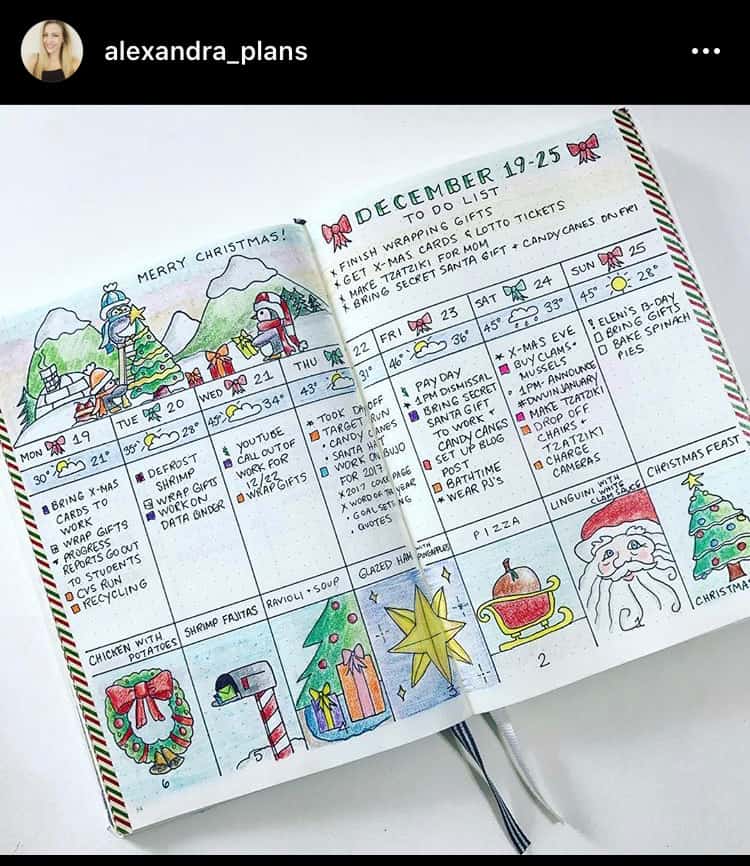 alexandra_plans
MERRY CHRISTMAS!
DECEMBER 19-25
TO DO LIST
x FINISH WRAPPING GIFTS
x GET X-MAS CARDS & LOTTO TICKETS
x MAKE TZATZIKI FOR MOM
x BRING SECRET SANTA GIFT + CANDY CANES ON FRI
MON 19
30° 21°
BRING X-MAS
CARDS TO
WORK
WRAP GIFTS
PROGRESS
REPORTS GO OUT
TO STUDENTS
CVS RUN
RECYCLING
CHICKEN WITH
POTATOES
6
TUE 20
35° 28°
DEFROST
SHRIMP
WRAP GIFTS
WORK ON
DATA BINDER
SHRIMP FAJITAS
5
WED 21
45° 34°
YOUTUBE
CALL OUT OF
WORK FOR
12/22
WRAP GIFTS
RAVIOLI + SOUP
4
THU 22
43° 31°
TOOK DAY OFF
TARGET RUN
CANDY CANES
SANTA
WORK ON BUJO
FOR 2017
x 2017 COVER PAGE
x WORD OF THE YEAR
GOAL SETTING
QUOTES
GLAZED HAM WITH PINEAPPLES
3
FRI 23
46° 36°
PAY DAY
1PM DISMISSAL
BRING SECRET
SANTA GIFT
TO WORK +
CANDY CANES
SET UP BLOG
POST
BATHTIME
* WEAR PJ'S
PIZZA
2
SAT 24
45° 33°
* X-MAS EVE
BUY CLAMS +
MUSSELS
1PM - ANNOUNCE
#DWUINJANUARY
MAKE TZATZIKI
DROP OFF
CHAIRS +
TZATZIKI
CHARGE
CAMERAS
LINGUINI WITH
WHITE
CLAM SAUCE
1
SUN 25
45° 28°
! ELENI'S B-DAY
BRING GIFTS
BAKE SPINACH
PIES
CHRISTMAS FEAST
CHRISTMAS